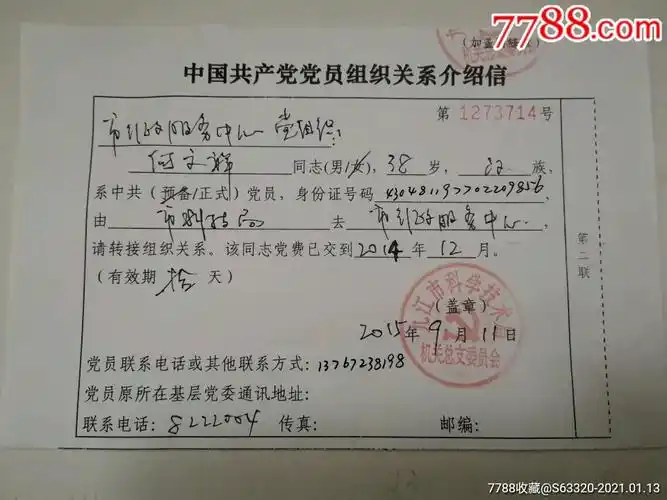 7788.com
(如盖骑缝章)
中国共产党党员组织关系介绍信
第1273714号
市行政服务中心党组织:
何文辉 同志(男/女), 38 岁, 汉 族,
系中共(预备/正式)党员,身份证号码
由 市科技局 去 市行政服务中心.
请转接组织关系。该同志党费已交到2014年12月。
(有效期 拾 天)
第二联
九江市科学技术
机关总支委员会
(盖章)
2015年9月11日
党员联系电话或其他联系方式: 13767238198
党员原所在基层党委通讯地址:
联系电话: 8222004 传真: 邮编:
7788收藏@S63320-2021.01.13